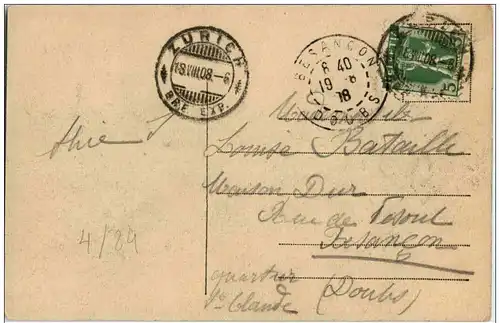 ZÜRICH
18.VIII.08.-6
BRF. EXP.
BESANCON
8 40
19 -8
08
DOUBS
5
Mademoiselle
Louise Bataille
Maison Dur
Rue de Vesoul
Besançon
quartier
St Claude
(Doubs)
4/84